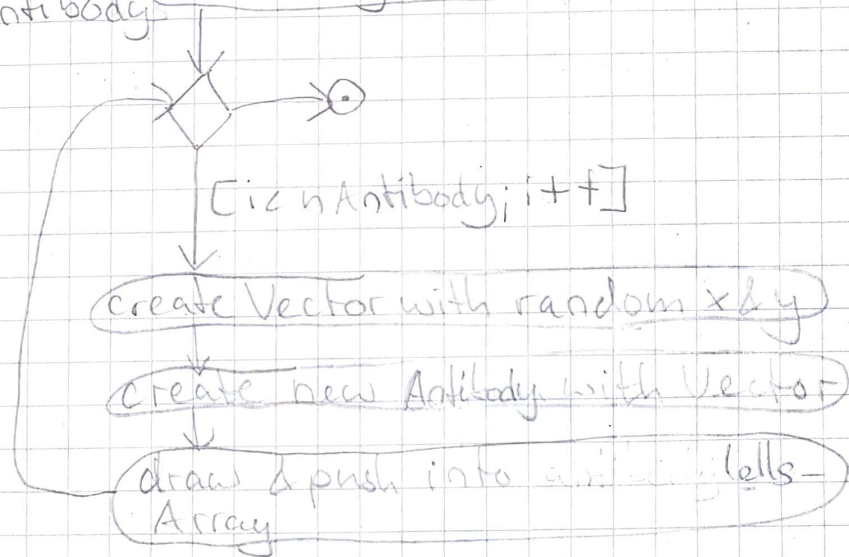 ntibody
[i< nAntibody; i++]
create Vector with random x & y
create new Antibody with Vector
draw & push into cells-
Array